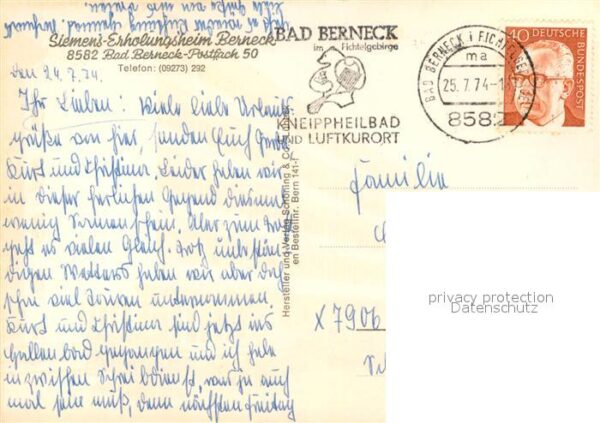 Siemens-Erholungsheim Berneck
8582 Bad Berneck-Postfach 50
Telefon: (09273) 292
den 24.7.74.
Ihr Lieben! Viele liebe Urlaubs
grüße von hier, senden Euch
Kurt und Christina. Leider haben wir
in dieser herrlichen Gegend diesmal
wenig Sonnenschein. Aber zum
geht es vielen gleich. Trotz unbestän-
digen Wetters haben wir aber doch
schon viel Touren unternommen.
Kurt und Christina sind jetzt ins
Hallenbad gegangen und ich habe
inzwischen Schreibdienst, was ja auch
mal sein muß, denn nächsten Freitag
BAD BERNECK
im Fichtelgebirge
KNEIPPHEILBAD
UND LUFTKURORT
BAD BERNECK i FICHTELGEBIRGE
ma
25.7.74-1
8582
40 DEUTSCHE
BUNDESPOST
Hersteller und Verlag Schöning & Co
en Bestellnr. Bern 141-1
Familie
X 7906
privacy protection
Datenschutz